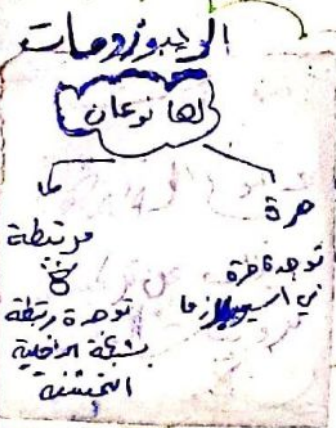 الريبوزومات
لها نوعان
حرة
توجد حرة
في السيتوبلازما
مرتبطة
توجد مرتبطة
بشبكة الداخلية
الخشنة